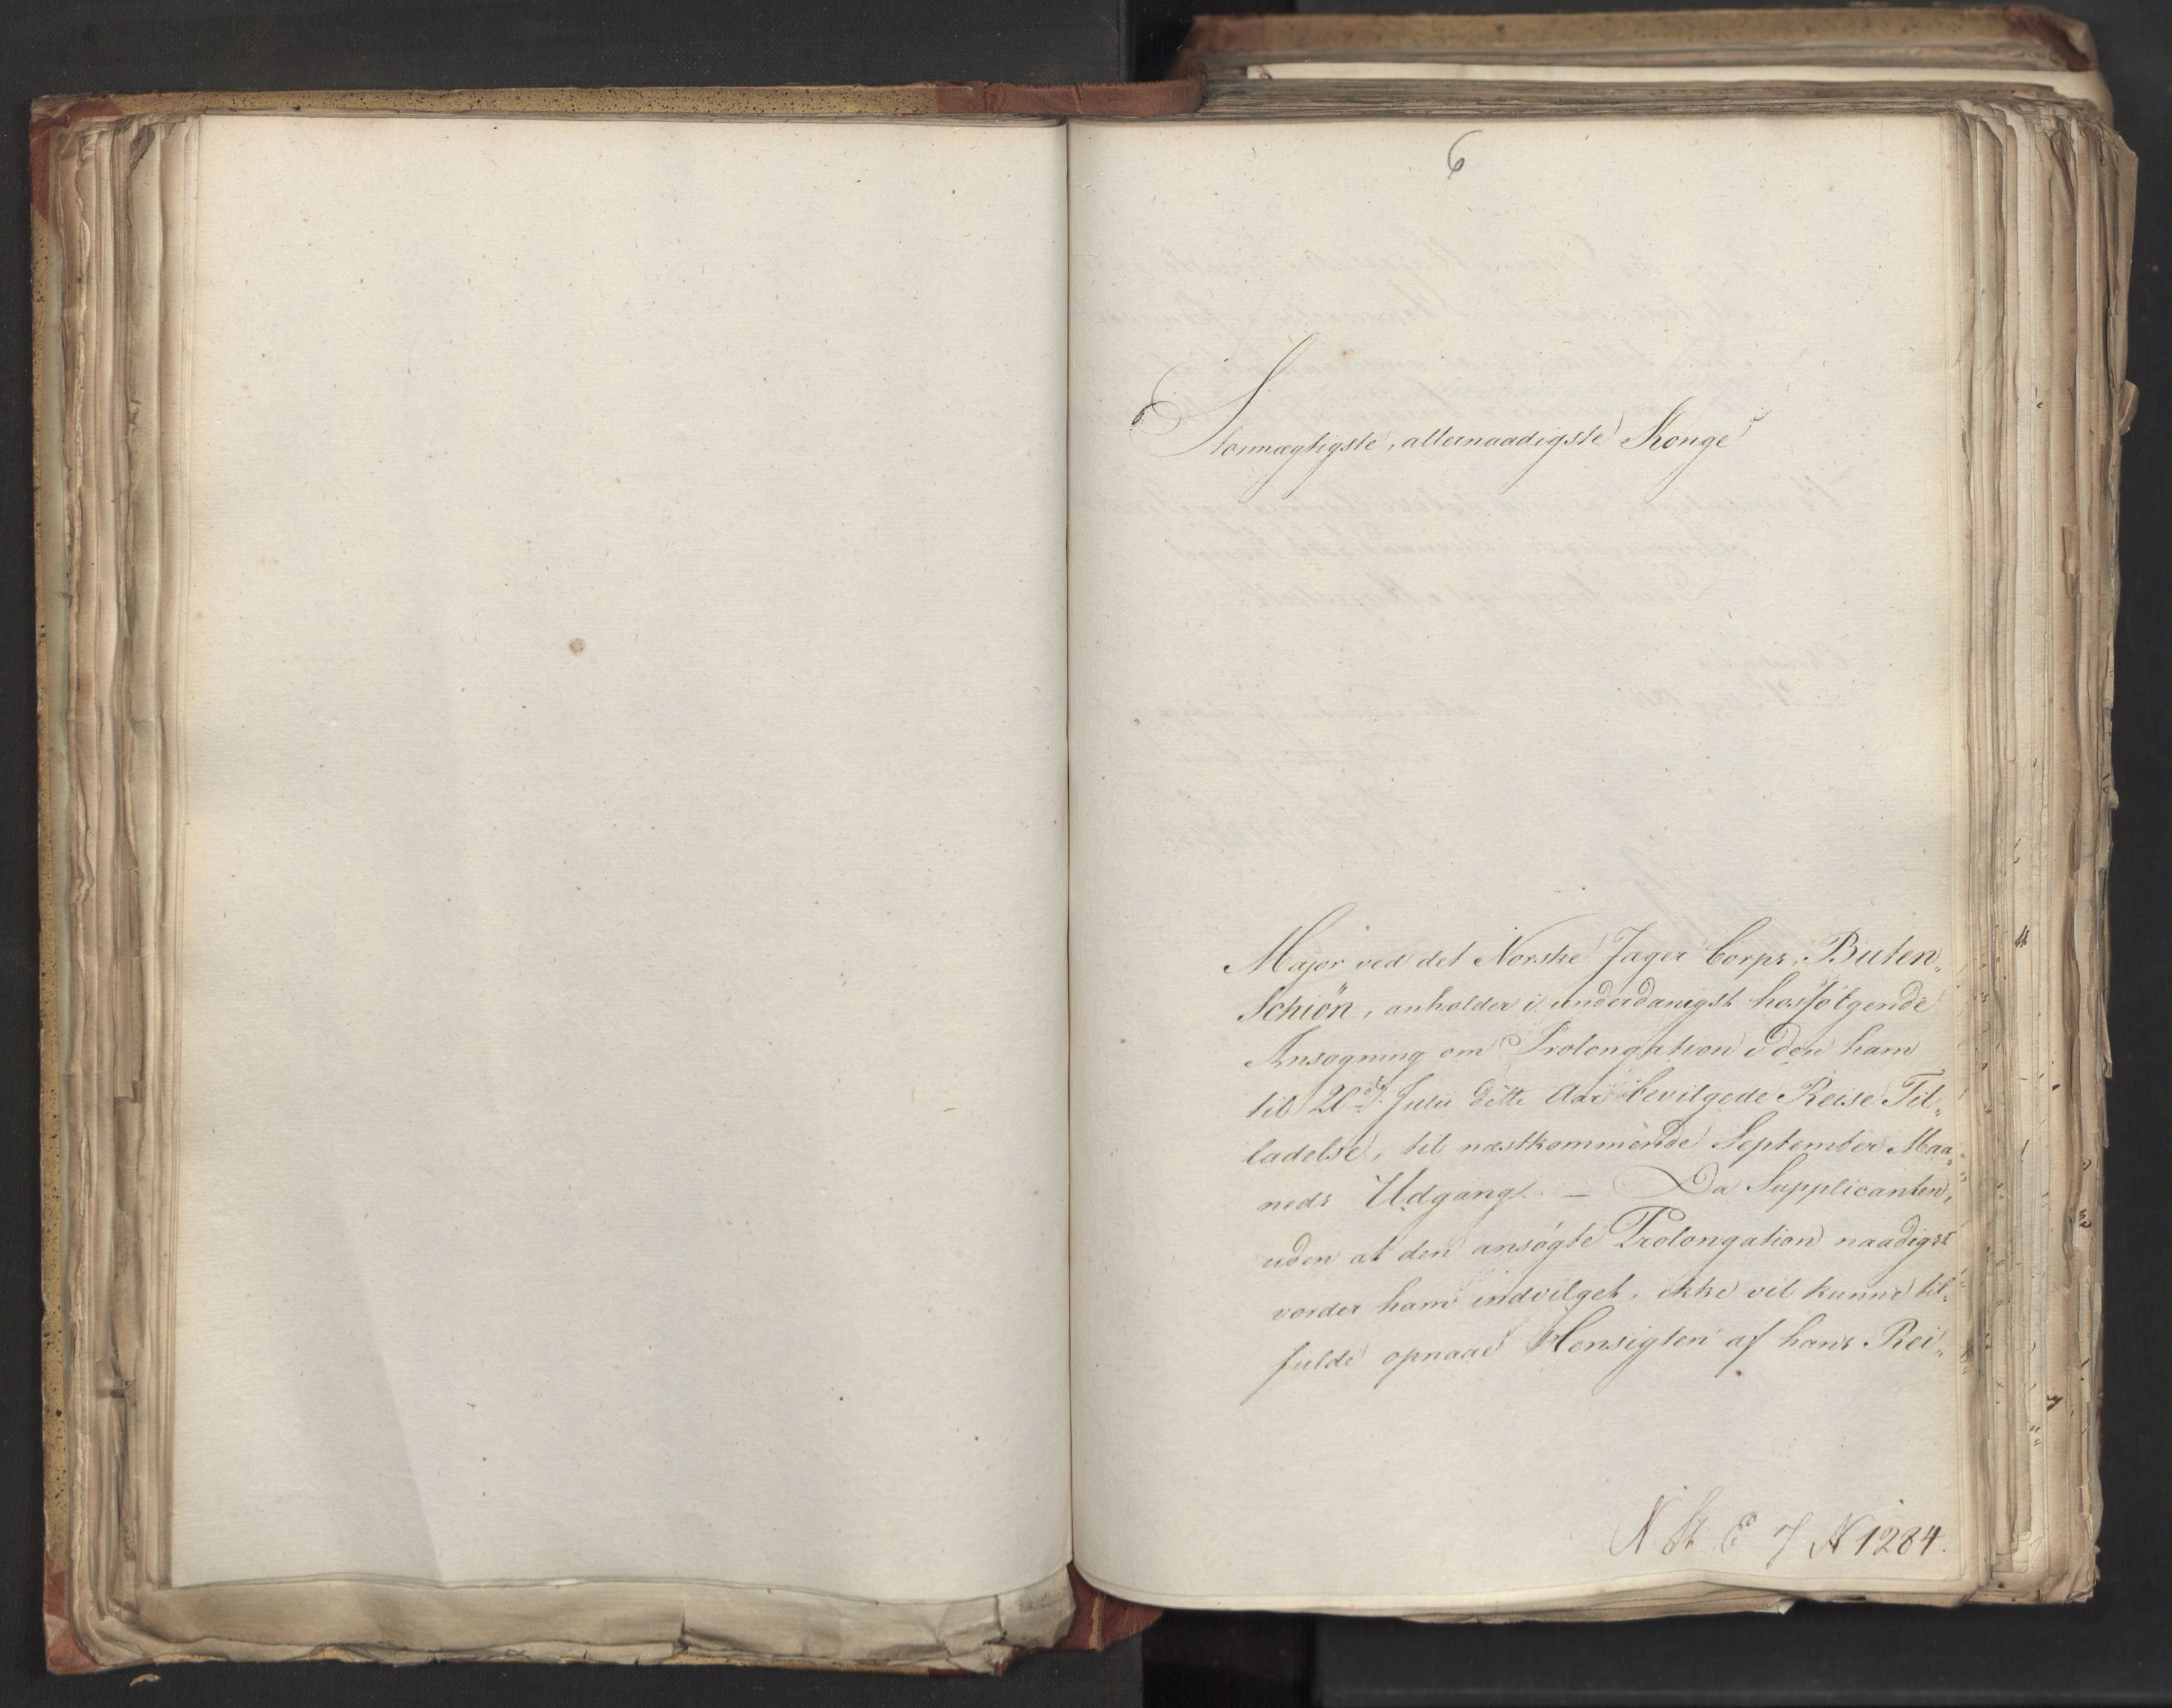 6
Stormægtigste, allernaadigste Konge!
Major ved det Norske Jæger Corps, Buten„
Schiön, anholder i underdanigst hosfølgende
Ansøgning om Prolongation i den ham
til 20de Julii dette Aar bevilgede Reise Til„
ladelse, til næstkommende September Maa„
neds Udgang. — Da Supplicanten,
uden at den ansøgte Prolongation naadigst
vorder ham indvilget, ikke vil kunne til„
fulde opnaae Hensigten af hans Rei„
N. St. E. 7 N 1284.